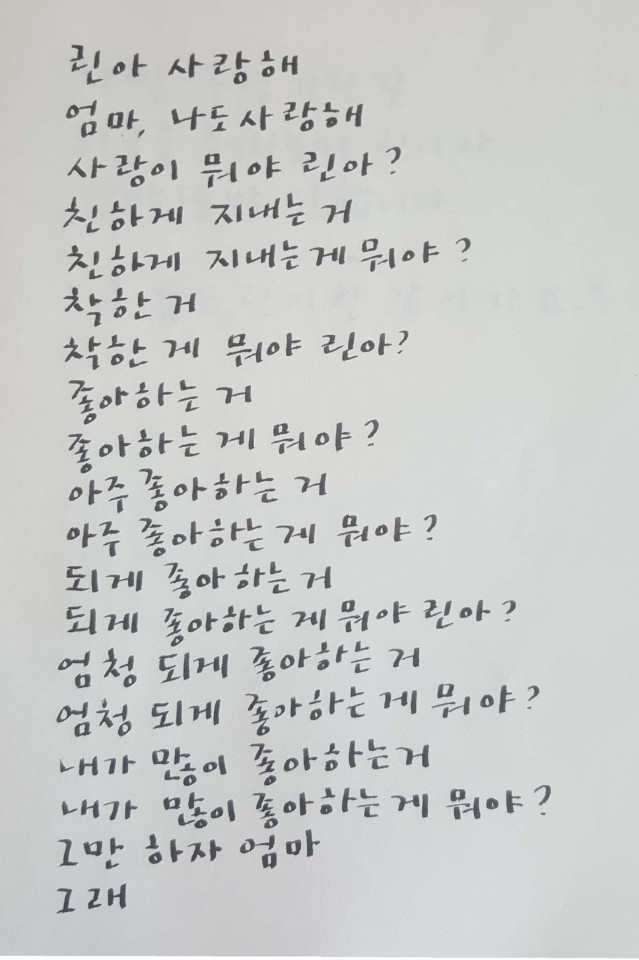 린아 사랑해
엄마, 나도 사랑해
사랑이 뭐야 린아?
친하게 지내는 거
친하게 지내는게 뭐야?
착한 거
착한 게 뭐야 린아?
좋아하는 거
좋아하는 게 뭐야?
아주 좋아하는 거
아주 좋아하는 게 뭐야?
되게 좋아하는 거
되게 좋아하는 게 뭐야 린아?
엄청 되게 좋아하는 거
엄청 되게 좋아하는 게 뭐야?
내가 많이 좋아하는거
내가 많이 좋아하는게 뭐야?
그만 하자 엄마
그래